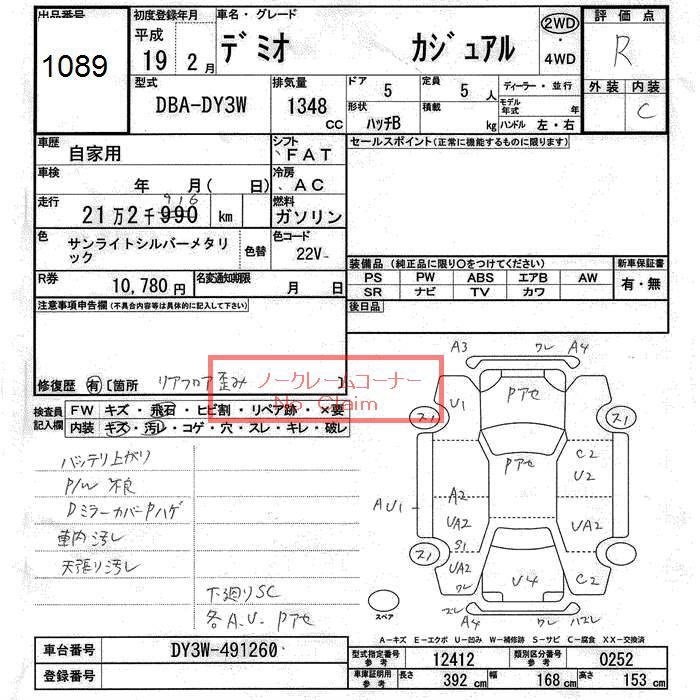 出品番号
1089
初度登録年月
平成
19年 2月
車名・グレード
デミオ カジュアル
2WD
・
4WD
評価点
R
外装 内装
C
型式
DBA-DY3W
排気量
1348
CC
ドア
5
定員
5 人
形状
ハッチB
積載
kg
ディーラー・並行
モデル年式 年
ハンドル 左・右
車歴
自家用
シフト
FAT
セールスポイント(正常に機能するものに限ります)
車検
年 月( 日)
冷房
AC
走行
916
21万2千990 km
燃料
ガソリン
色
サンライトシルバーメタリック
色替
色コード
22V
R券
10,780円
名変通知期限
月 日
装備品(純正品に限り○をつけてください)
PS PW ABS エアB AW
SR ナビ TV カワ
新車保証書
有・無
後日品
注意事項申告欄(不具合内容等は具体的に記入して下さい)
修復歴 有 [箇所 リアフロア歪み ]
ノークレームコーナー
No Claim
検査員記入欄
FW キズ・飛石・ヒビ割・リペア跡・×要
内装 キズ・汚レ・コゲ・穴・スレ・キレ・破レ
バッテリ上がり
P/W 不良
Dミラーカバー Pハゲ
車内汚し
天張り汚し
下廻りSC
各A.U. Pアセ
A3 ワレ A4
U1
Pアセ
ス1 ス1
Pアセ
C2
U2
AU1
A2
UA2
UA2
ス1
S1
UA2
ワレ
U4
C2
スペア
ズレ
A4 ワレ ハズレ
A-キズ E-エクボ U-凹み W-補修跡 S-サビ C-腐食 XX-交換済
車台番号
DY3W-491260
登録番号
型式指定番号
参考
12412
類別区分番号
参考
0252
車庫証明用
参考
長さ 392 cm
幅 168 cm
高さ 153 cm